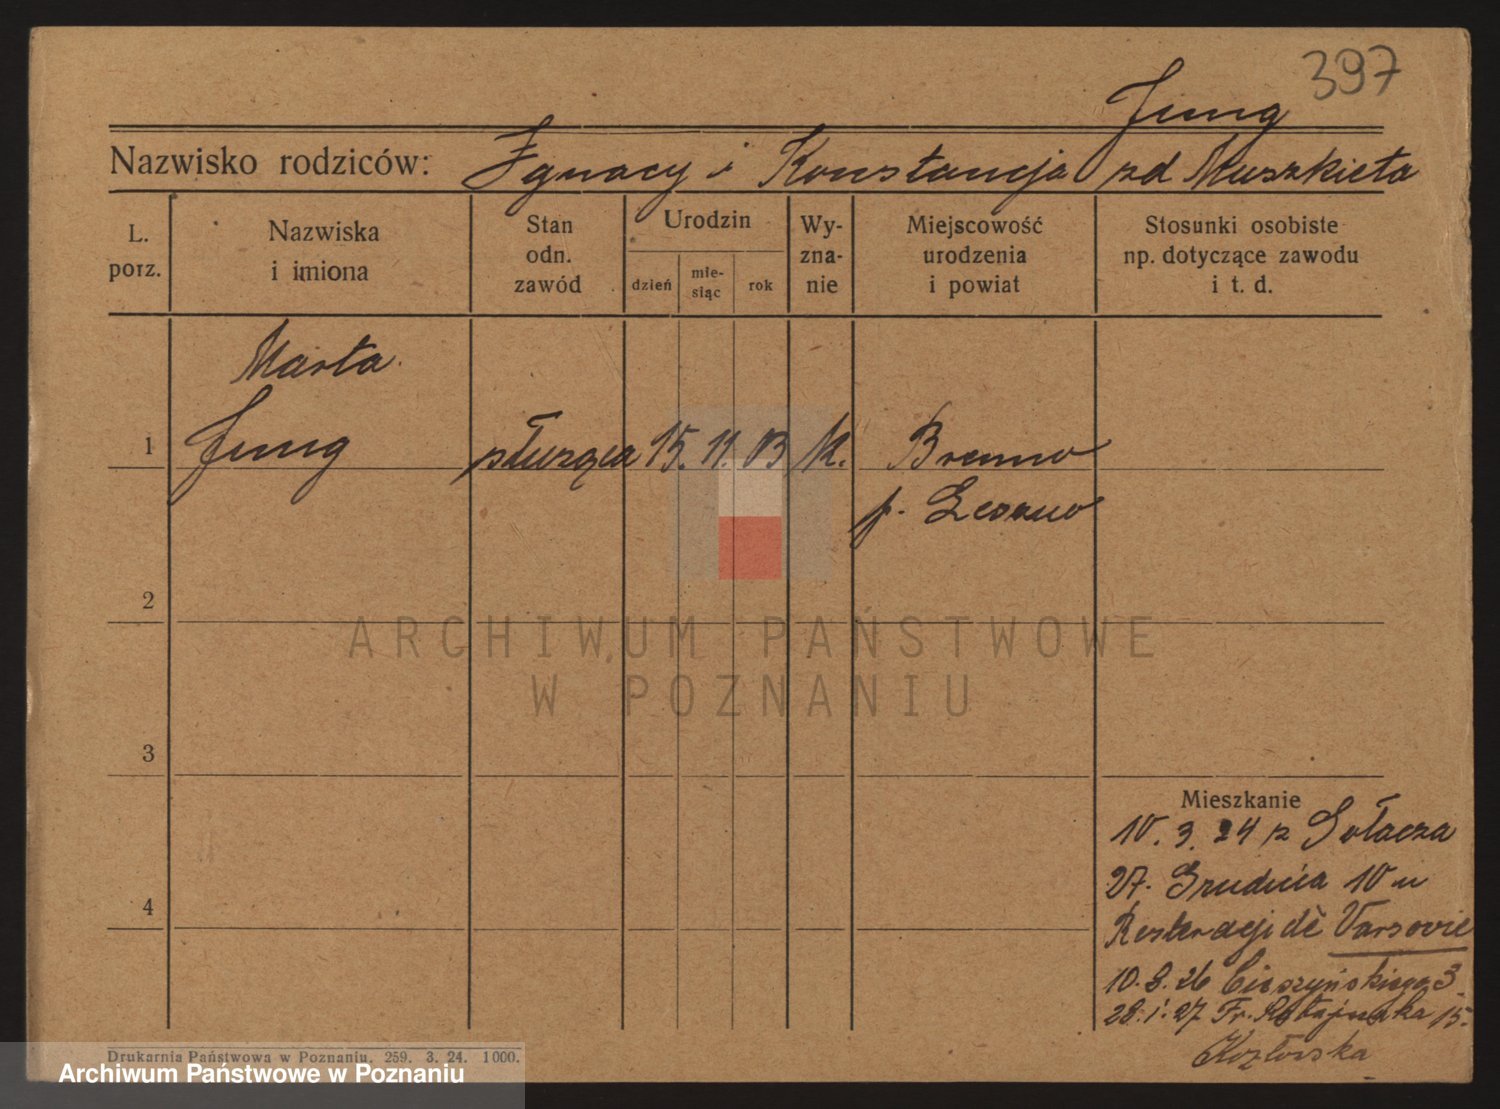 397
Jung
Nazwisko rodziców: Ignacy i Konstancja zd Muszkieta
L. porz.
Nazwiska i imiona
Stan odn. zawód
Urodzin
dzień
mie-siąc
rok
Wy-zna-nie
Miejscowość urodzenia i powiat
Stosunki osobiste np. dotyczące zawodu i t. d.
Marta
1 Jung służąca 15. 11. 03 k. Brenno
p. Leszno
2
ARCHIWUM PAŃSTWOWE
W POZNANIU
3
Mieszkanie
10. 3. 24 z Sołacza
27. Grudnia 10 u
Resteracji de Varsovie
10. 8. 26 Cieszyńskiego 3
28. 1. 27 Fr. Ratajczaka 15.
Kozłowska
4
Drukarnia Państwowa w Poznaniu. 259. 3. 24. 1000.
Archiwum Państwowe w Poznaniu